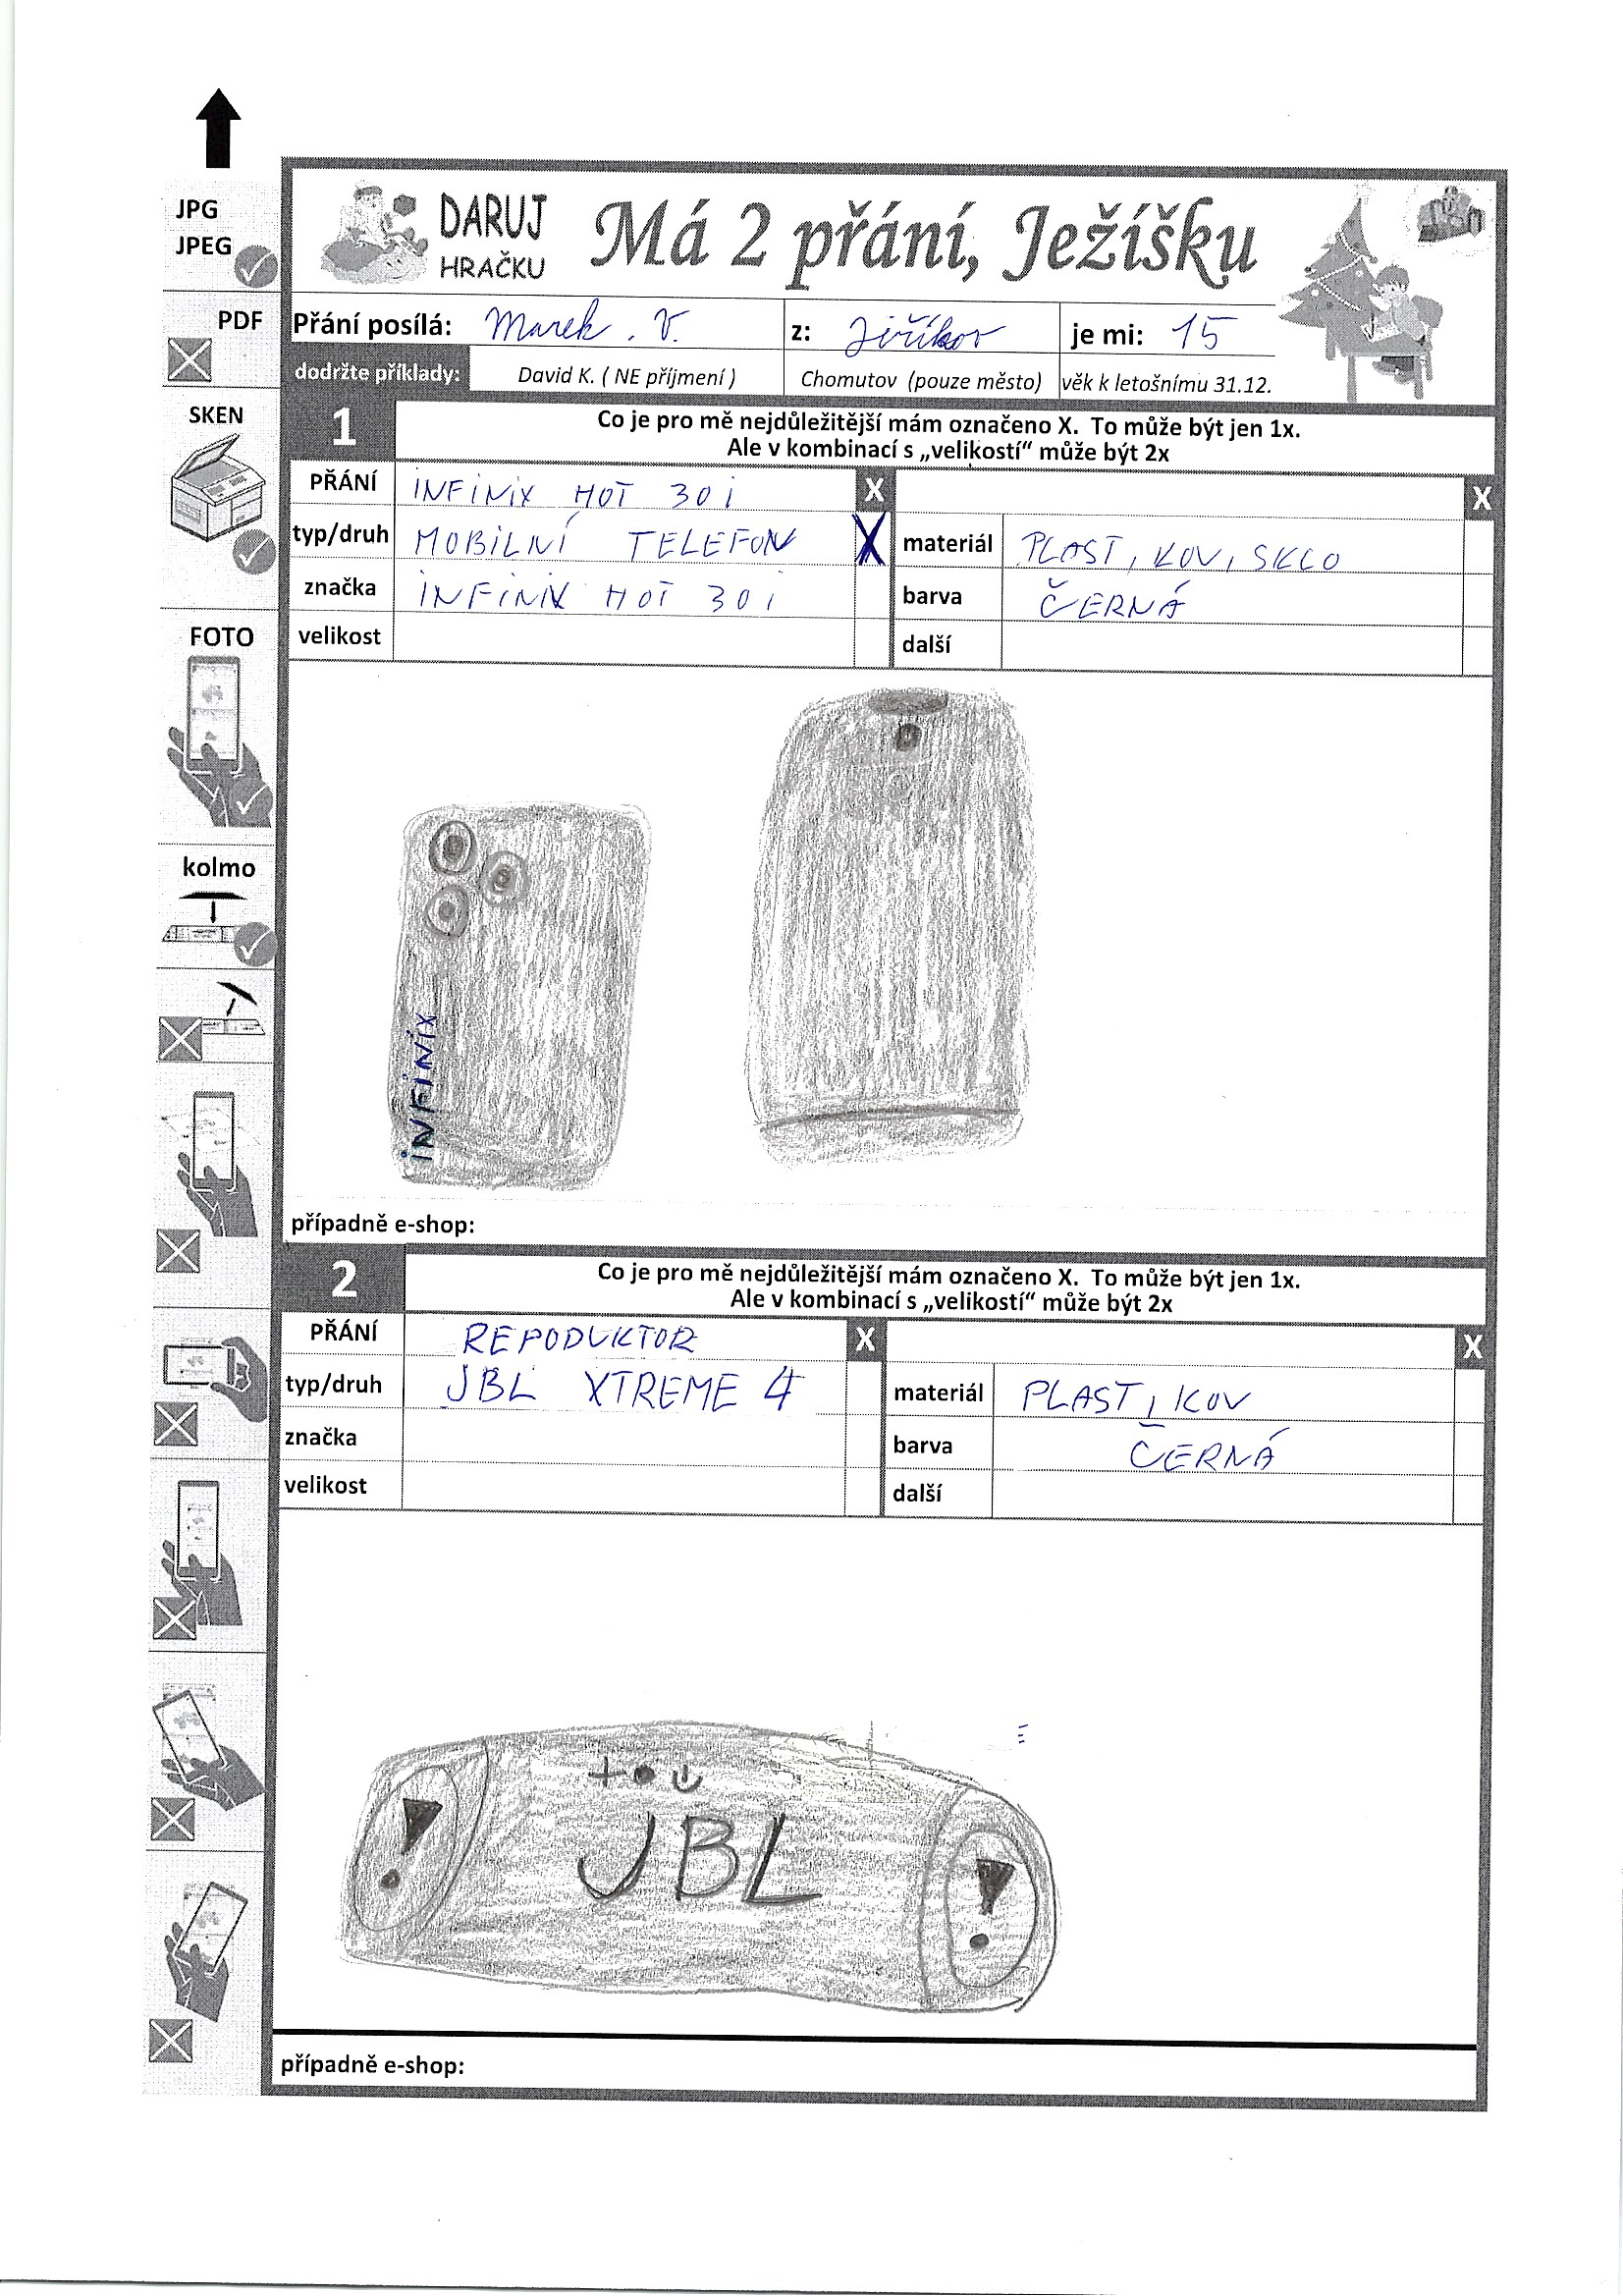 JPG
JPEG
PDF
SKEN
FOTO
kolmo
DARUJ
HRAČKU
Má 2 přání, Ježíšku
Přání posílá: Marek . V. z: Jiříkov je mi: 15
dodržte příklady: David K. ( NE příjmení ) Chomutov (pouze město) věk k letošnímu 31.12.
1 Co je pro mě nejdůležitější mám označeno X. To může být jen 1x.
Ale v kombinací s „velikostí“ může být 2x
PŘÁNÍ INFINIX HOT 30 i X X
typ/druh MOBILNÍ TELEFON X materiál PLAST, KOV, SKLO
značka INFINIX HOT 30 i barva ČERNÁ
velikost další
INFINIX
případně e-shop:
2 Co je pro mě nejdůležitější mám označeno X. To může být jen 1x.
Ale v kombinací s „velikostí“ může být 2x
PŘÁNÍ REPODUKTOR X X
typ/druh JBL XTREME 4 materiál PLAST, KOV
značka barva ČERNÁ
velikost další
JBL
případně e-shop: